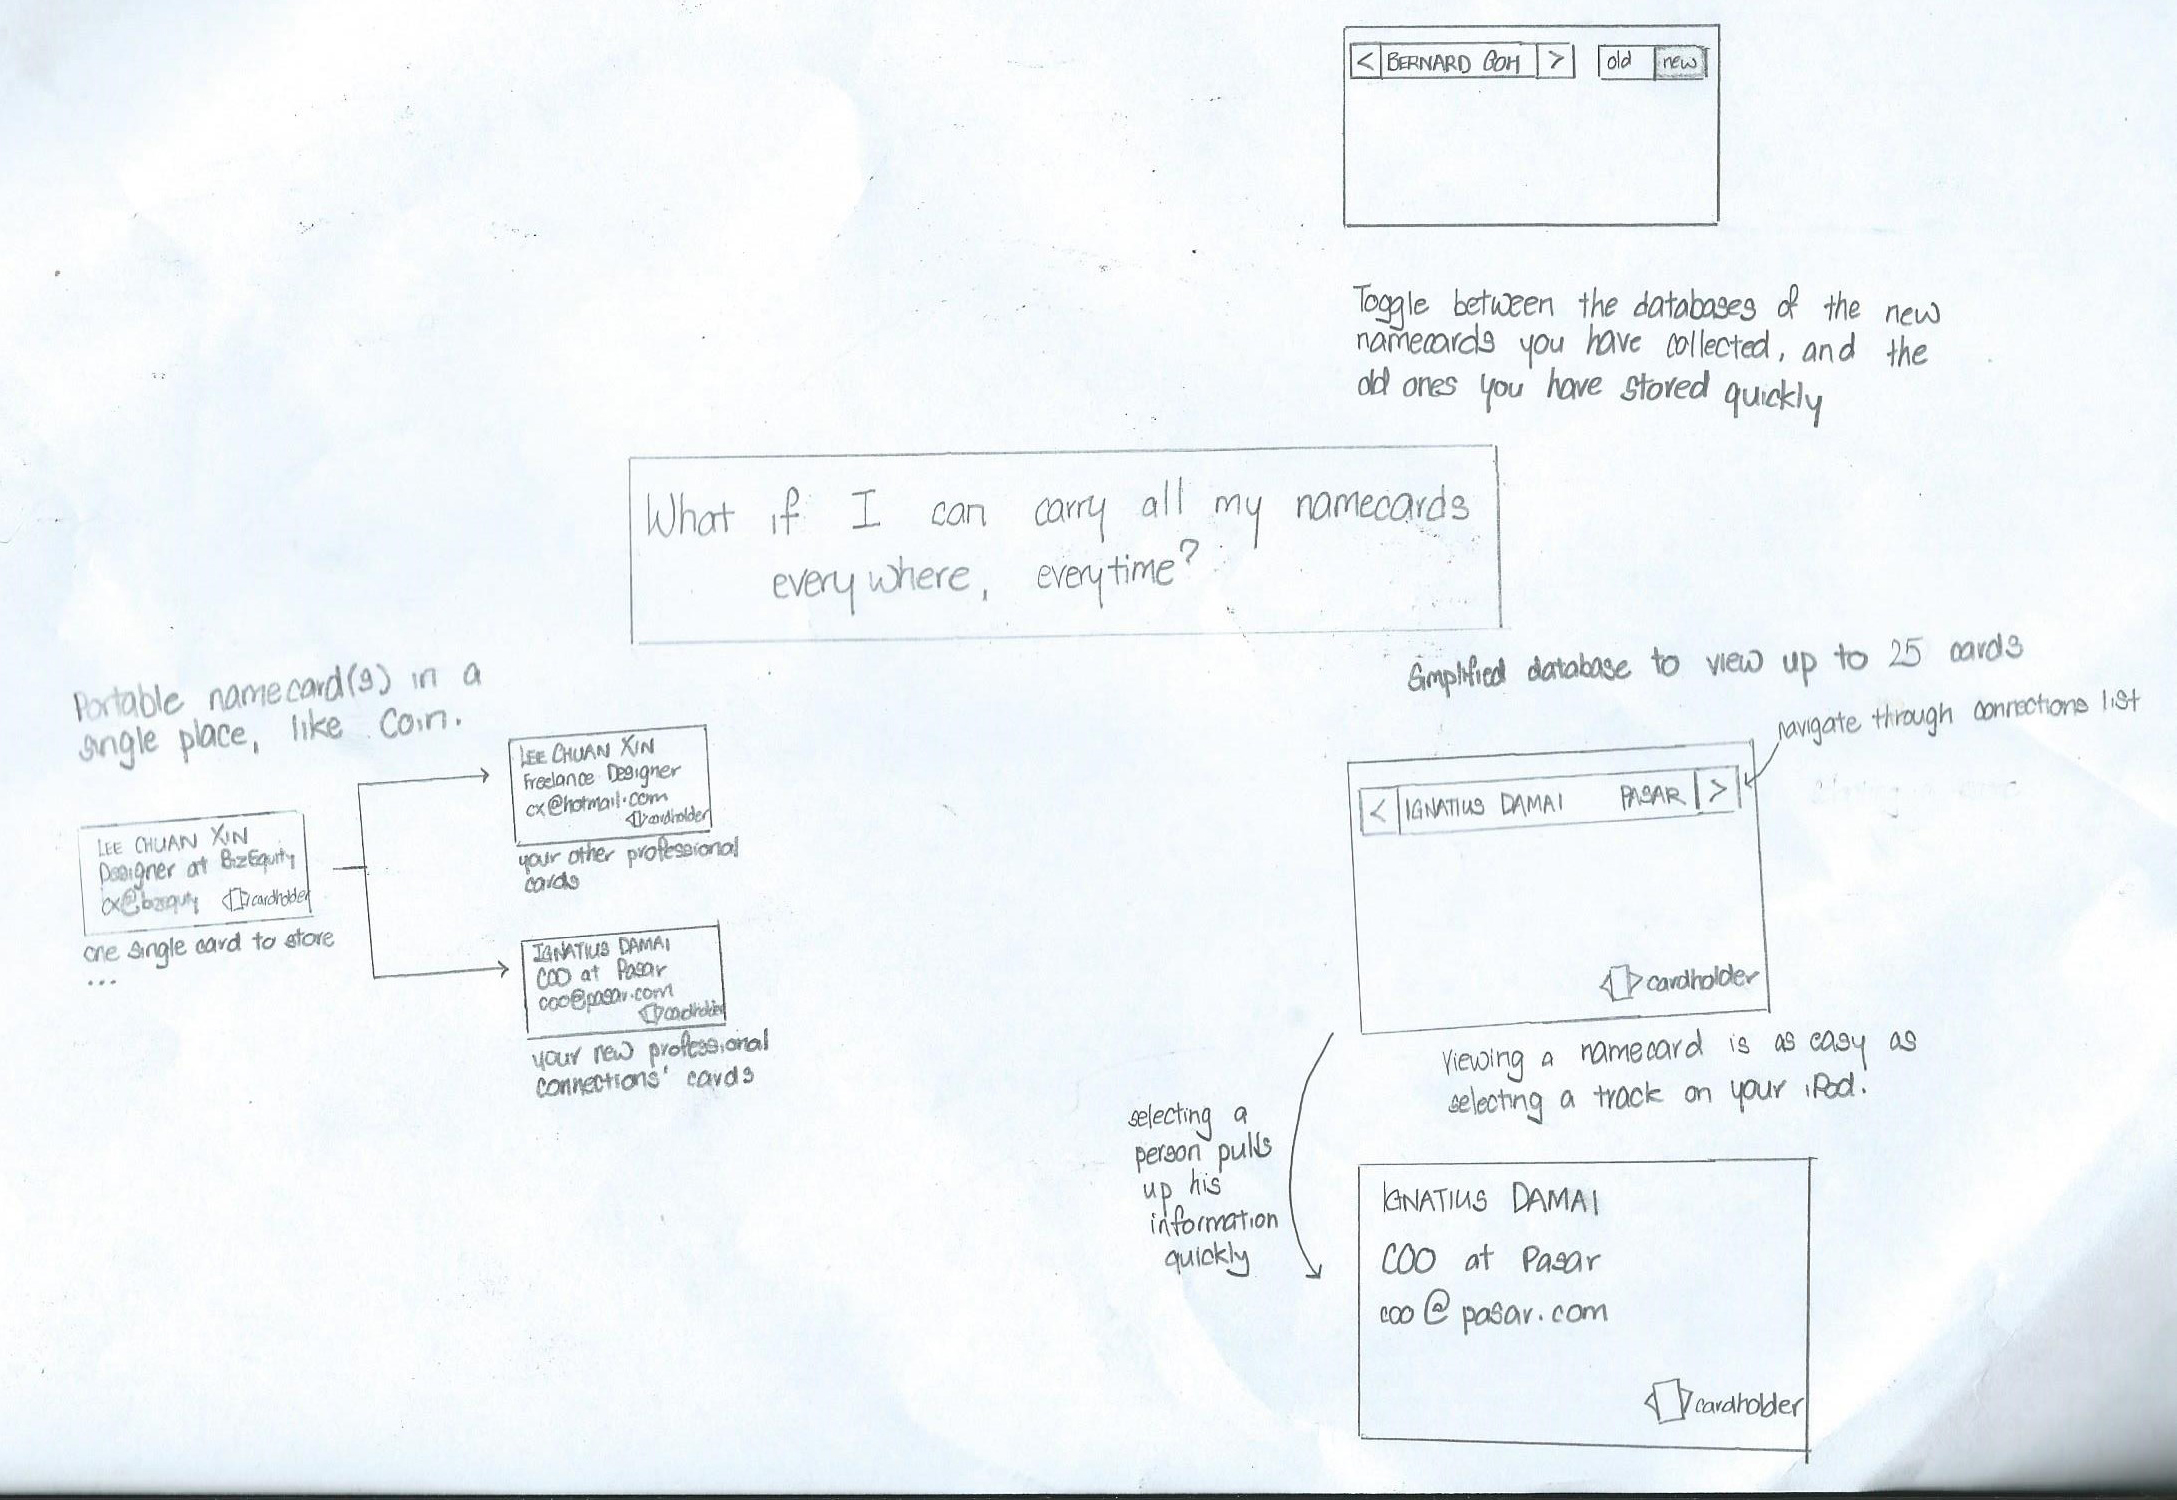 < BERNARD GOH > old new
Toggle between the databases of the new
namecards you have collected, and the
old ones you have stored quickly
What if I can carry all my namecards
everywhere, everytime?
Portable namecard(s) in a
single place, like Coin.
LEE CHUAN XIN
Designer at BizEquity
cx@bizequity cardholder
one single card to store
...
LEE CHUAN XIN
Freelance Designer
cx@hotmail.com
cardholder
your other professional
cards
IGNATIUS DAMAI
COO at Pasar
coo@pasar.com
cardholder
your new professional
connections' cards
Simplified database to view up to 25 cards
navigate through connections list
< IGNATIUS DAMAI PASAR >
cardholder
Viewing a namecard is as easy as
selecting a track on your iPod.
selecting a
person pulls
up his
information
quickly
IGNATIUS DAMAI
COO at Pasar
coo@pasar.com
cardholder